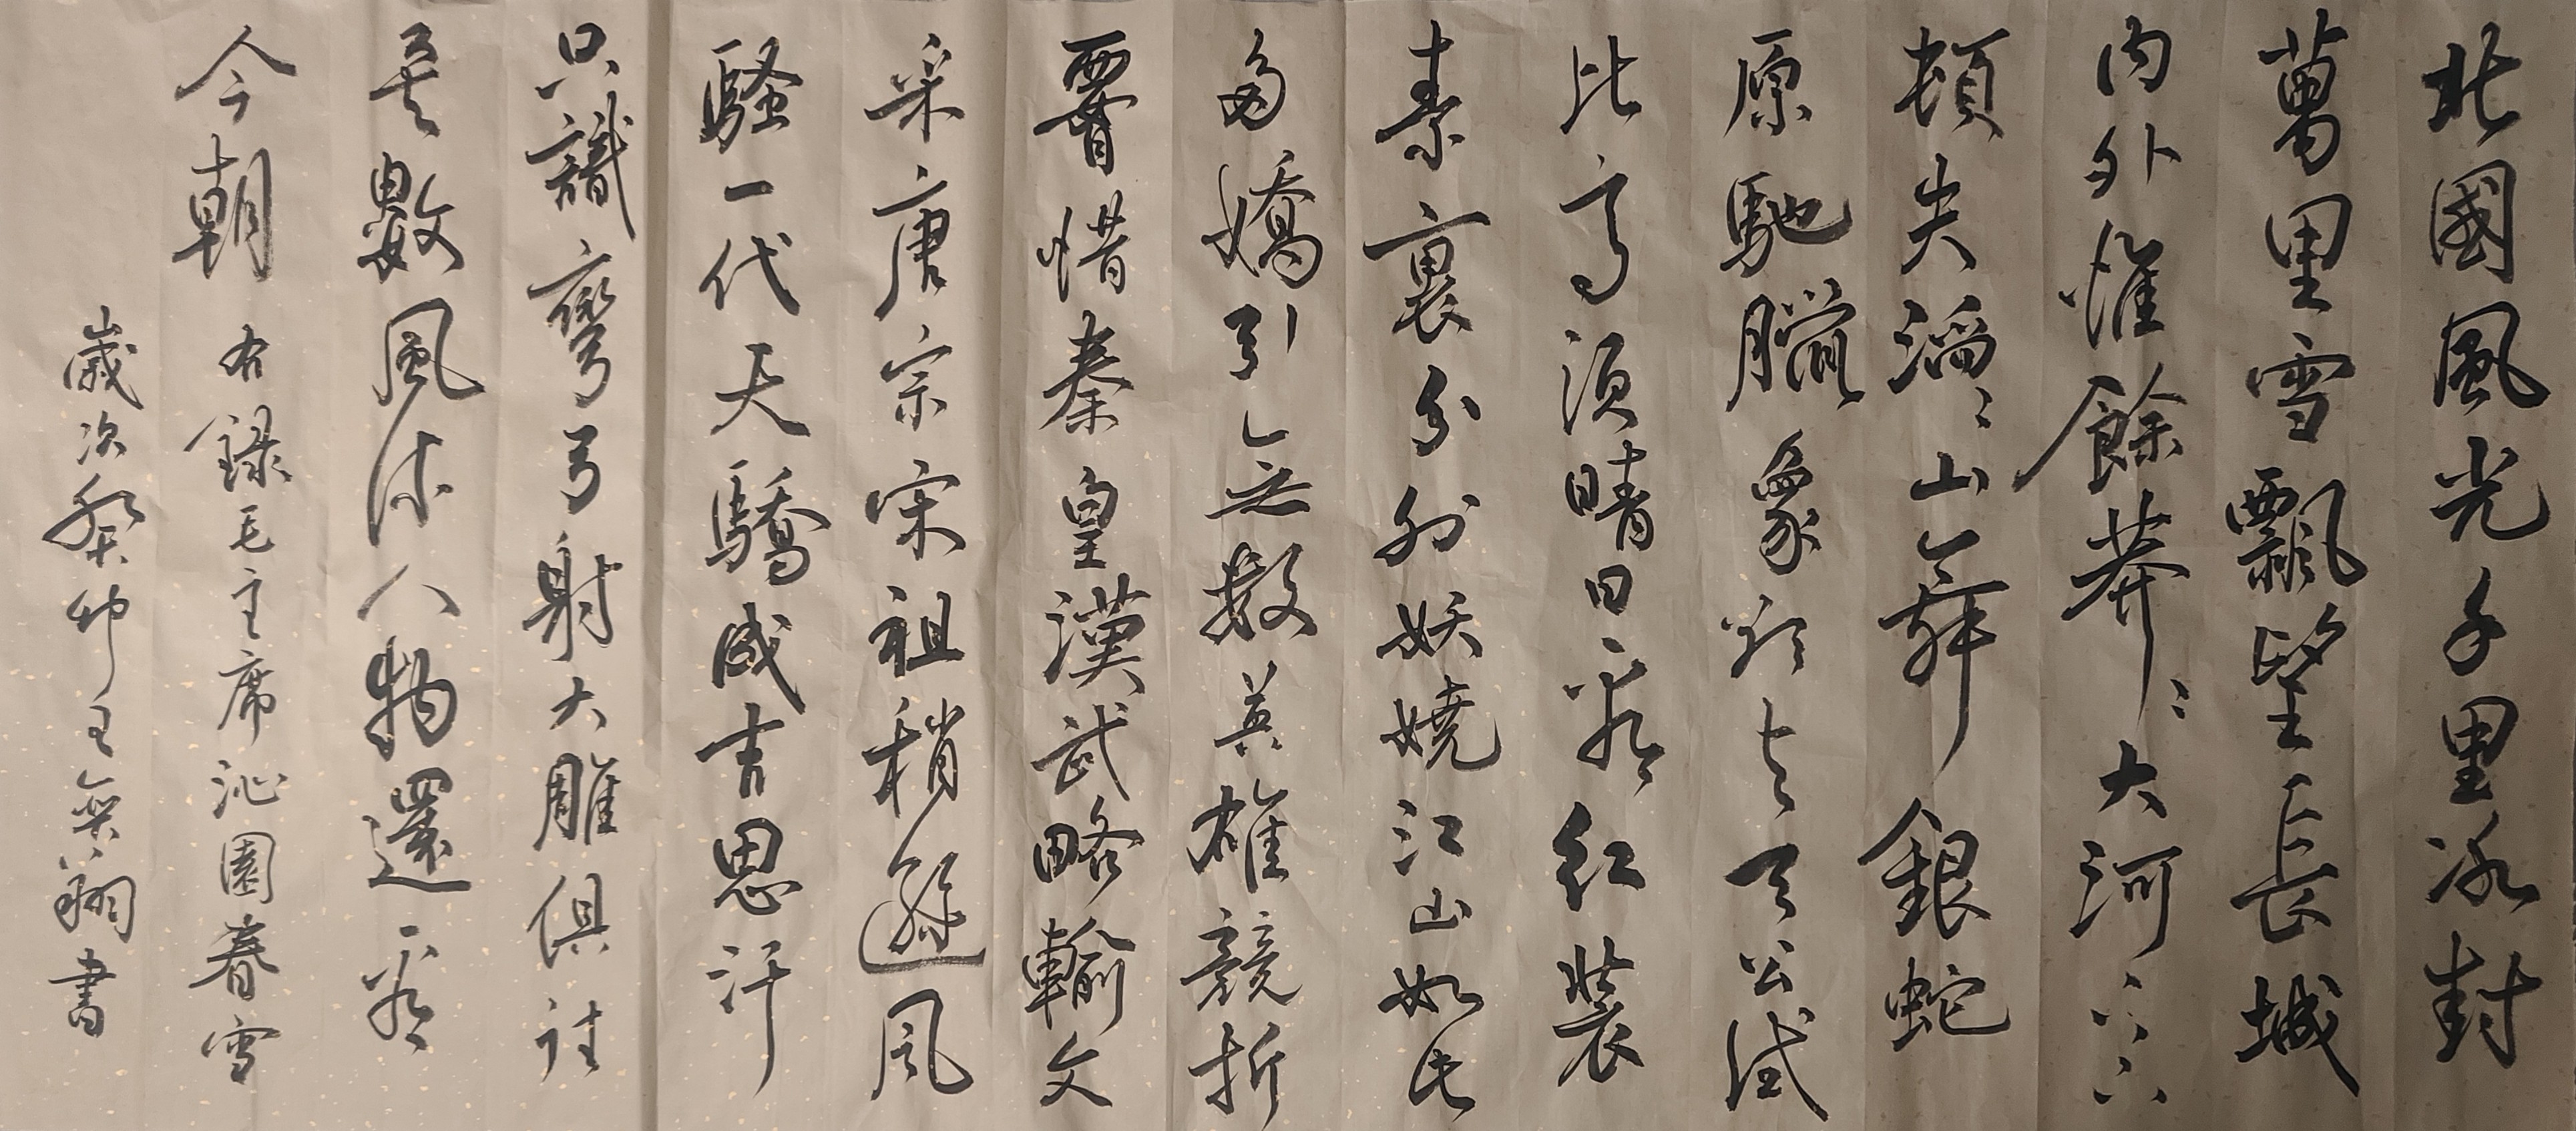 北國風光千里冰封
萬里雪飄望長城
内外惟餘莽〻大河上下
頓失滔〻山舞銀蛇
原馳臘象欲与天公試
比高須晴日看紅裝
素裹分外妖嬈江山如此
多嬌引無數英雄競折
腰惜秦皇漢武略輸文
采唐宗宋祖稍遜風
騷一代天驕成吉思汗
只識彎弓射大雕俱往
矣數風流人物還看
今朝 右錄毛主席沁園春雪
歲次癸卯王翔書